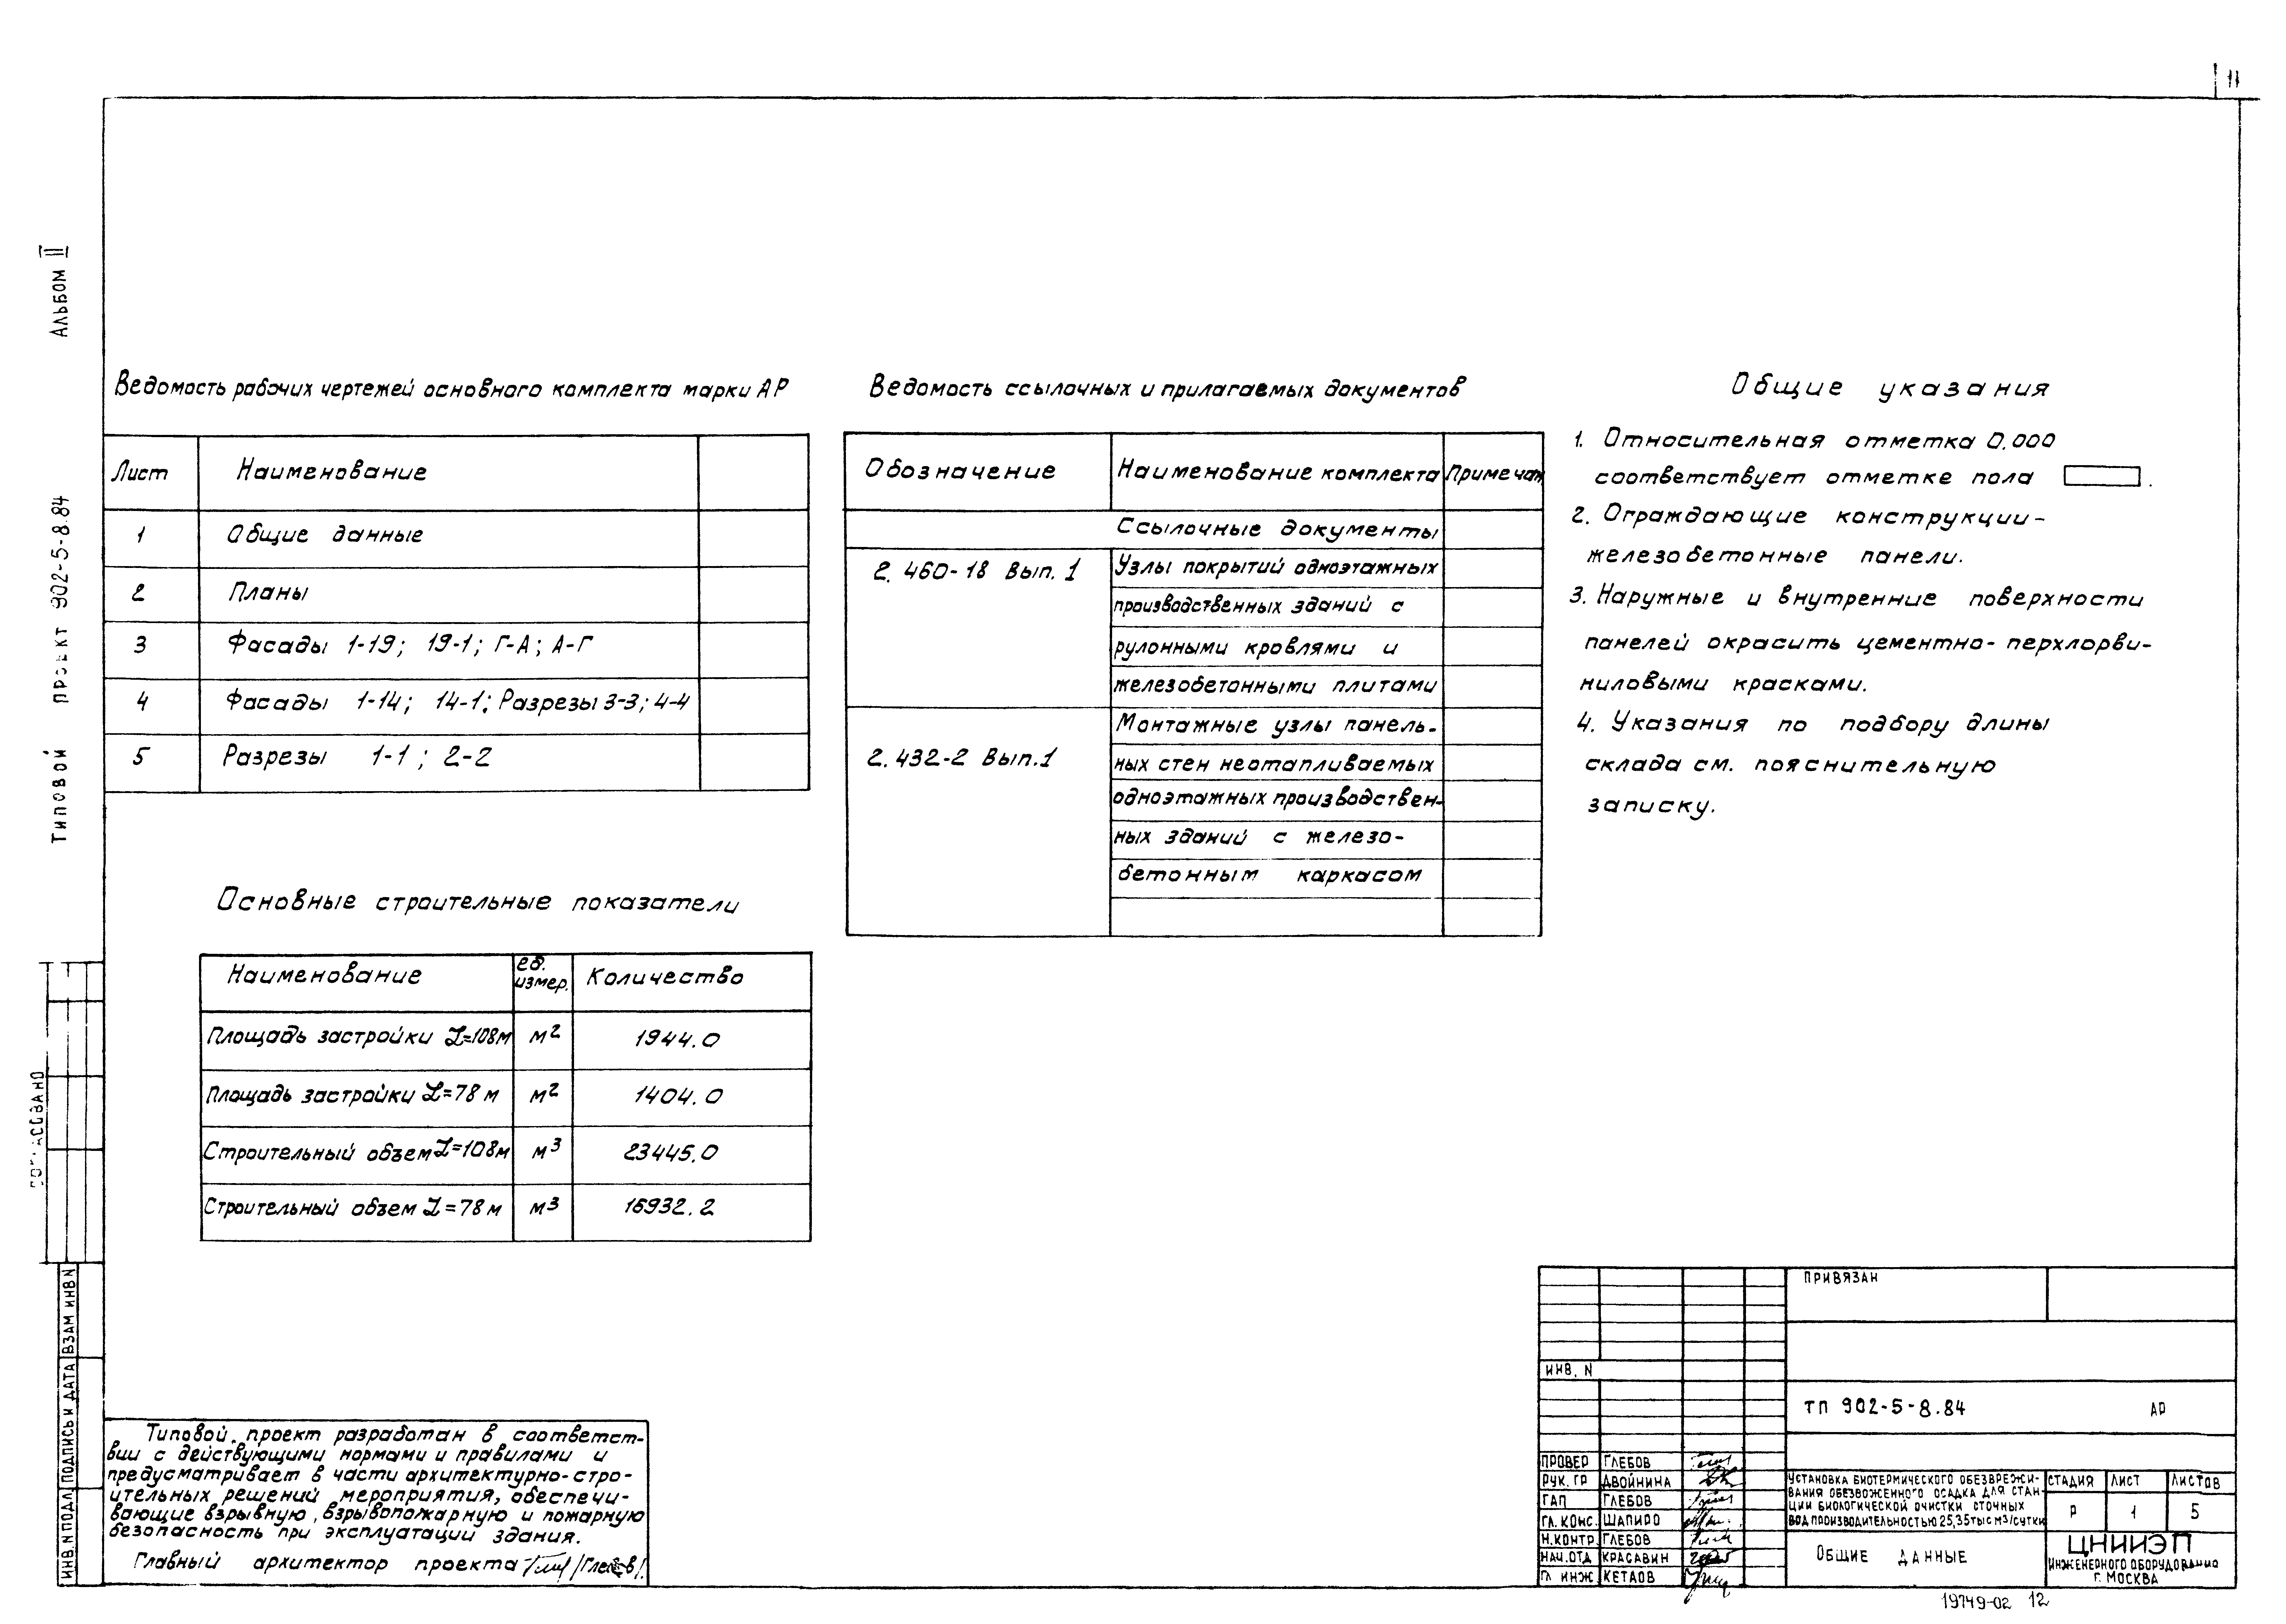 11
Альбом II
Типовой проект 902-5-8.84
Ведомость рабочих чертежей основного комплекта марки АР
Лист Наименование
1 Общие данные
2 Планы
3 Фасады 1-19; 19-1; Г-А; А-Г
4 Фасады 1-14; 14-1; Разрезы 3-3; 4-4
5 Разрезы 1-1; 2-2
Основные строительные показатели
Наименование ед. измер. Количество
Площадь застройки L=108м м2 1944.0
Площадь застройки L=78м м2 1404.0
Строительный объем L=108м м3 23445.0
Строительный объем L=78м м3 16932.2
Ведомость ссылочных и прилагаемых документов
Обозначение Наименование комплекта Примечан
Ссылочные документы
2.460-18 Вып. 1 Узлы покрытий одноэтажных
производственных зданий с
рулонными кровлями и
железобетонными плитами
Монтажные узлы панель-
2.432-2 Вып.1 ных стен неотапливаемых
одноэтажных производствен-
ных зданий с железо-
бетонным каркасом
Общие указания
1. Относительная отметка 0.000
соответствует отметке пола .
2. Ограждающие конструкции-
железобетонные панели.
3. Наружные и внутренние поверхности
панелей окрасить цементно-перхлорви-
ниловыми красками.
4. Указания по подбору длины
склада см. пояснительную
записку.
Типовой проект разработан в соответст-
вии с действующими нормами и правилами и
предусматривает в части архитектурно-стро-
ительных решений мероприятия, обеспечи-
вающие взрывную, взрывопожарную и пожарную
безопасность при эксплуатации здания.
Главный архитектор проекта /Глебов/
ИНВ.N ПОДЛ ПОДПИСЬ И ДАТА ВЗАМ ИНВ N
ПРИВЯЗАН
ИНВ. N
ТП 902-5-8.84 АР
ПРОВЕР ГЛЕБОВ
РУК. ГР ДВОЙНИНА
ГАП ГЛЕБОВ
ГЛ. КОНС. ШАПИРО
Н.КОНТР. ГЛЕБОВ
НАЧ.ОТД КРАСАВИН
ГЛ ИНЖ КЕТАОВ
УСТАНОВКА БИОТЕРМИЧЕСКОГО ОБЕЗВРЕЖИ-
ВАНИЯ ОБЕЗВОЖЕННОГО ОСАДКА ДЛЯ СТАН-
ЦИИ БИОЛОГИЧЕСКОЙ ОЧИСТКИ СТОЧНЫХ
ВОД ПРОИЗВОДИТЕЛЬНОСТЬЮ 25,35 ТЫС М3/СУТКИ
СТАДИЯ ЛИСТ ЛИСТОВ
Р 1 5
ОБЩИЕ ДАННЫЕ
ЦНИИЭП
ИНЖЕНЕРНОГО ОБОРУДОВАНИЯ
Г. МОСКВА
19749-02 12